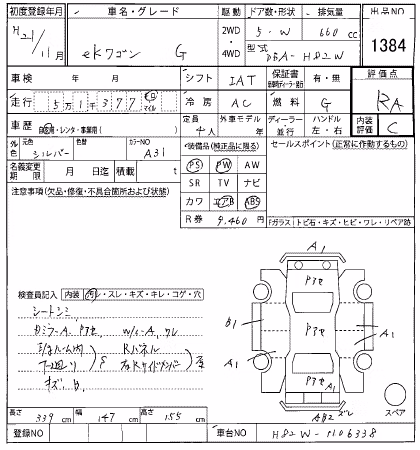 初度登録年月 車名・グレード 駆動 ドア数・形状 排気量 出品NO
H21/11月 eKワゴン G 2WD・4WD 5・W 660cc 1384
型式 DBA-H82W
車検 年 月 シフト IAT 保証書 有・無 評価点
走行 5万1千377 km マイル 冷房 AC 燃料 G RA
車歴 自家用・レンタ・事業用( ) 定員 4人 外車モデル年 年 ディーラー・並行 ハンドル 左・右 内装評価 C
外色 元色 シルバー 色替 カラーNO A31
装備品(純正品に限る) セールスポイント(正常に作動するもの)
名義変更期限 月 日迄 積載 t
PS PW AW
SR TV ナビ
カワ エアB ABS
R券 9,460円
注意事項(欠品・修復・不具合箇所および状態)
Fガラス トビ石・キズ・ヒビ・ワレ・リペア跡
検査員記入 内装 汚レ・スレ・キズ・キレ・コゲ・穴
シートシミ
Rパネル
A1
P7セ
B1
P7セ
A1
A1
P7セ
A1
AB2 ズレ
スペア
長さ 339cm 幅 147cm 高さ 155cm
登録NO 車台NO H82W-1106338